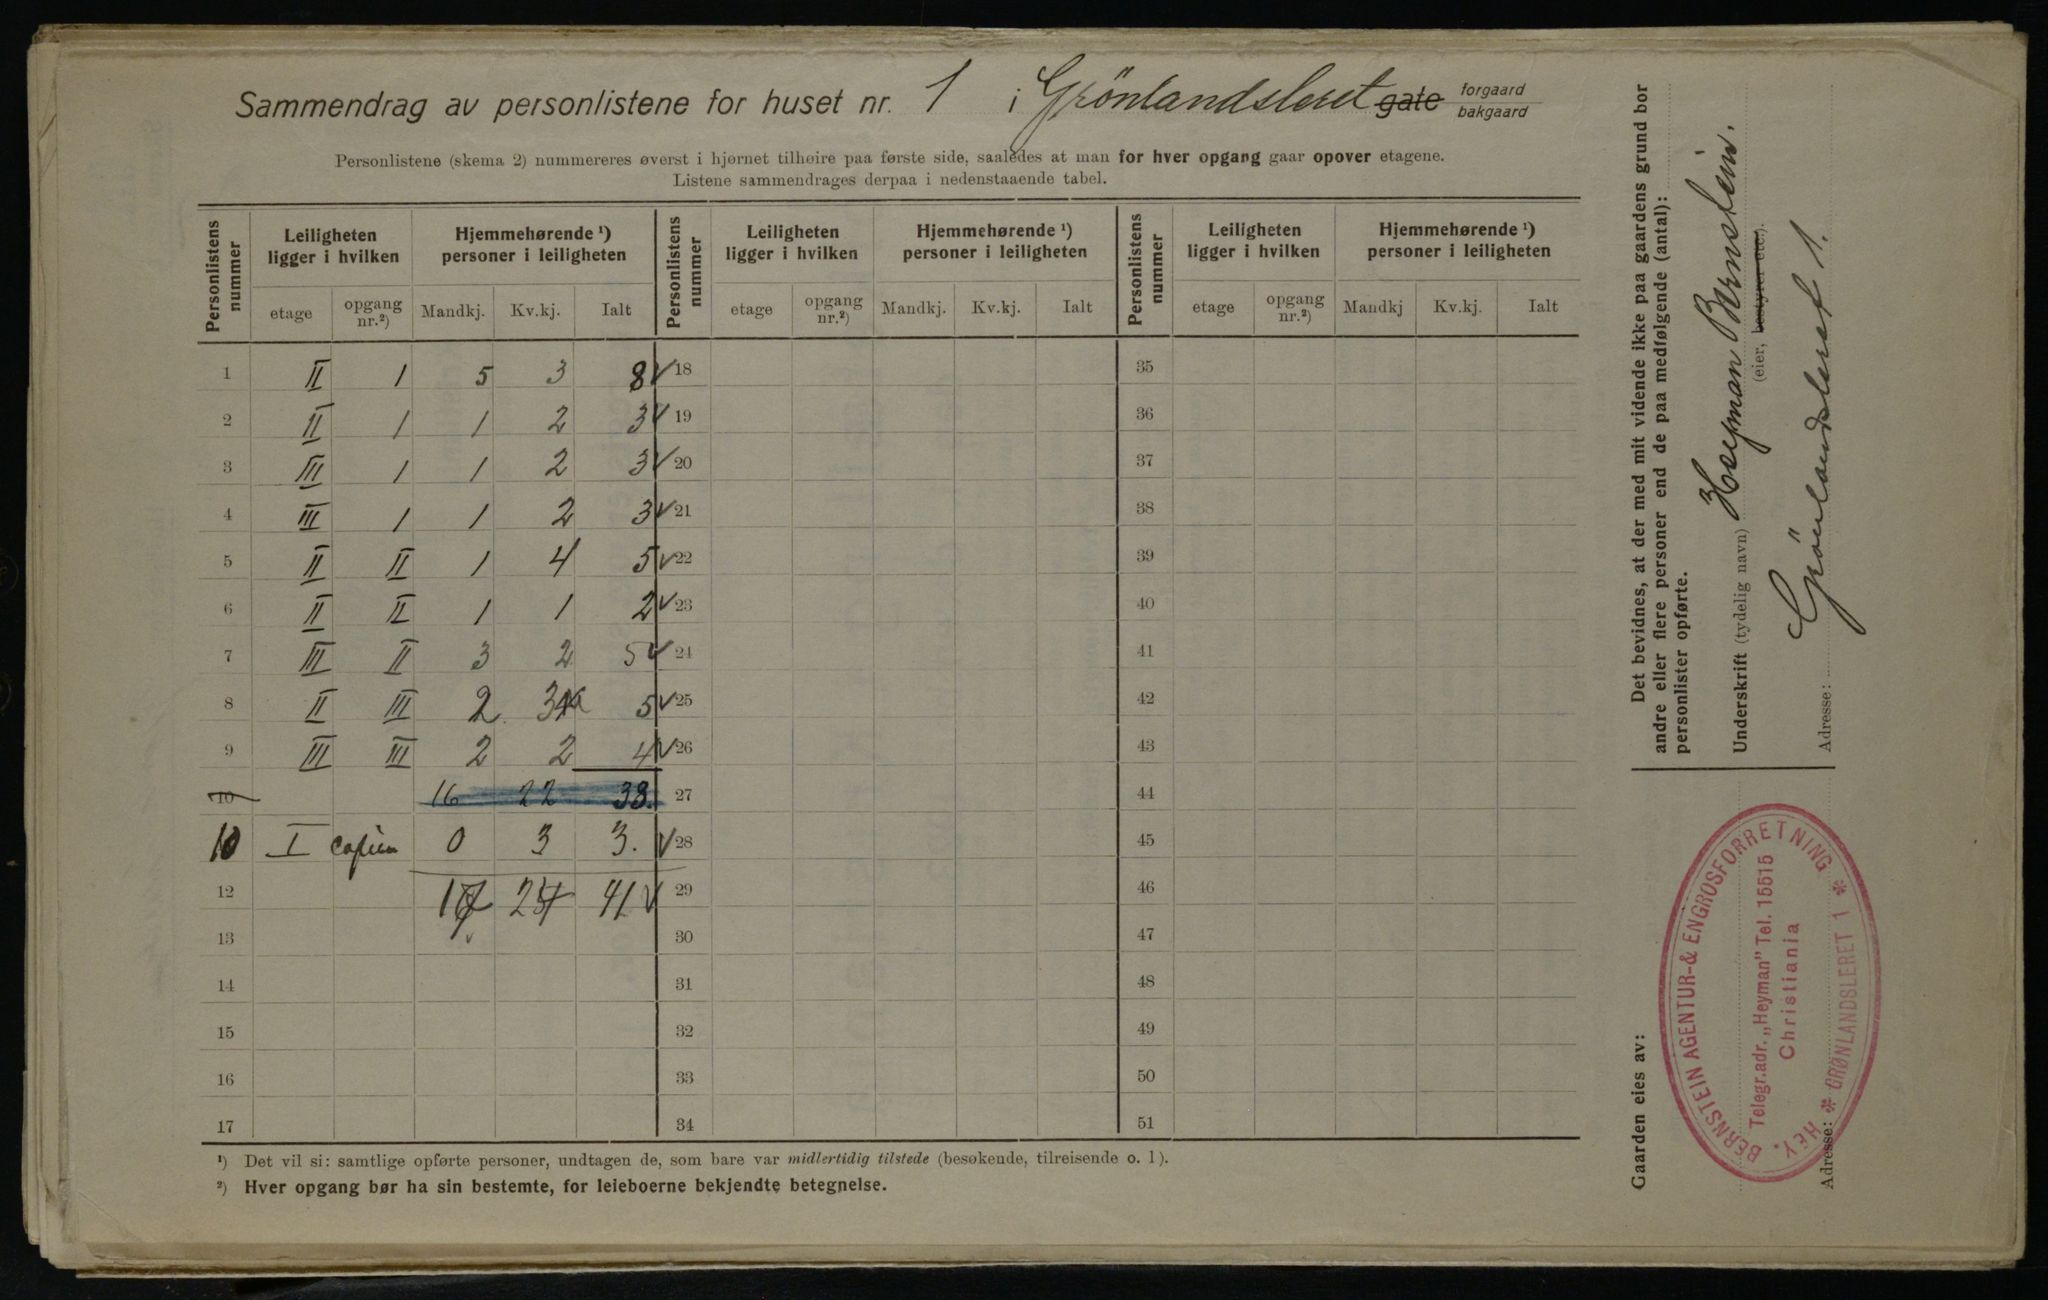 Sammendrag av personlistene for huset nr. 1 i Grönlandsleret gate forgaard bakgaard
Personlistene (skema 2) nummereres øverst i hjørnet tilhøire paa første side, saaledes at man for hver opgang gaar opover etagene.
Listene sammendrages derpaa i nedenstaaende tabel.
Personlistens nummer Leiligheten ligger i hvilken Hjemmehørende ¹) personer i leiligheten Personlistens nummer Leiligheten ligger i hvilken Hjemmehørende ¹) personer i leiligheten Personlistens nummer Leiligheten ligger i hvilken Hjemmehørende ¹) personer i leiligheten
etage opgang nr.²) Mandkj. Kv.kj. Ialt etage opgang nr.²) Mandkj. Kv.kj. Ialt etage opgang nr.²) Mandkj Kv.kj. Ialt
1 II 1 5 3 8 ✓ 18 35
2 II 1 1 2 3 ✓ 19 36
3 III 1 1 2 3 ✓ 20 37
4 III 1 1 2 3 ✓ 21 38
5 II II 1 4 5 ✓ 22 39
6 II II 1 1 2 ✓ 23 40
7 III II 3 2 5 ✓ 24 41
8 II III 2 3 5 ✓ 25 42
9 III III 2 2 4 ✓ 26 43
10 16 22 38. 27 44
10 I 0 3 3. ✓ 28 45
12 41 ✓ 29 46
13 30 47
14 31 48
15 32 49
16 33 50
17 34 51
¹) Det vil si: samtlige opførte personer, undtagen de, som bare var midlertidig tilstede (besøkende, tilreisende o. l).
²) Hver opgang bør ha sin bestemte, for leieboerne bekjendte betegnelse.
Det bevidnes, at der med mit vidende ikke paa gaardens grund bor
andre eller flere personer end de paa medfølgende (antal):
personlister opførte.
Underskrift (tydelig navn) Heyman Bernstein.
(eier, bestyrer etc.).
Adresse: Grönlandsleret 1.
Gaarden eies av:
HEY. BERNSTEIN AGENTUR-& ENGROSFORRETNING
Telegr.adr. „Heyman” Tel. 15515
Christiania
* GRØNLANDSLERET 1 *
Adresse: